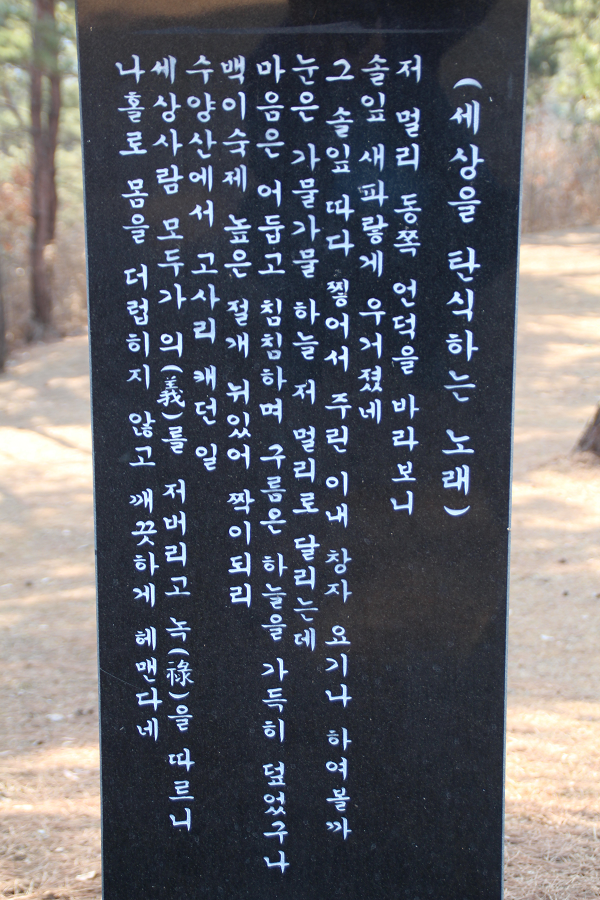 (세상을 탄식하는 노래)
저 멀리 동쪽 언덕을 바라보니
솔잎 새파랗게 우거졌네
그 솔잎 따다 찧어서 주린 이내 창자 요기나 하여볼까
눈은 가물가물 하늘 저 멀리로 달리는데
마음은 어둡고 침침하며 구름은 하늘을 가득히 덮었구나
백이숙제 높은 절개 뉘있어 짝이되리
수양산에서 고사리 캐던 일
세상사람 모두가 의(義)를 저버리고 녹(祿)을 따르니
나홀로 몸을 더럽히지 않고 깨끗하게 헤맨다네